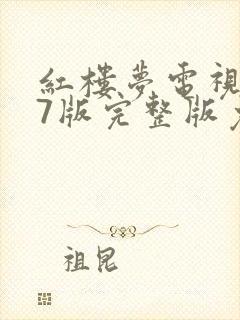 紅樓夢電視
7版完整版
祖昆